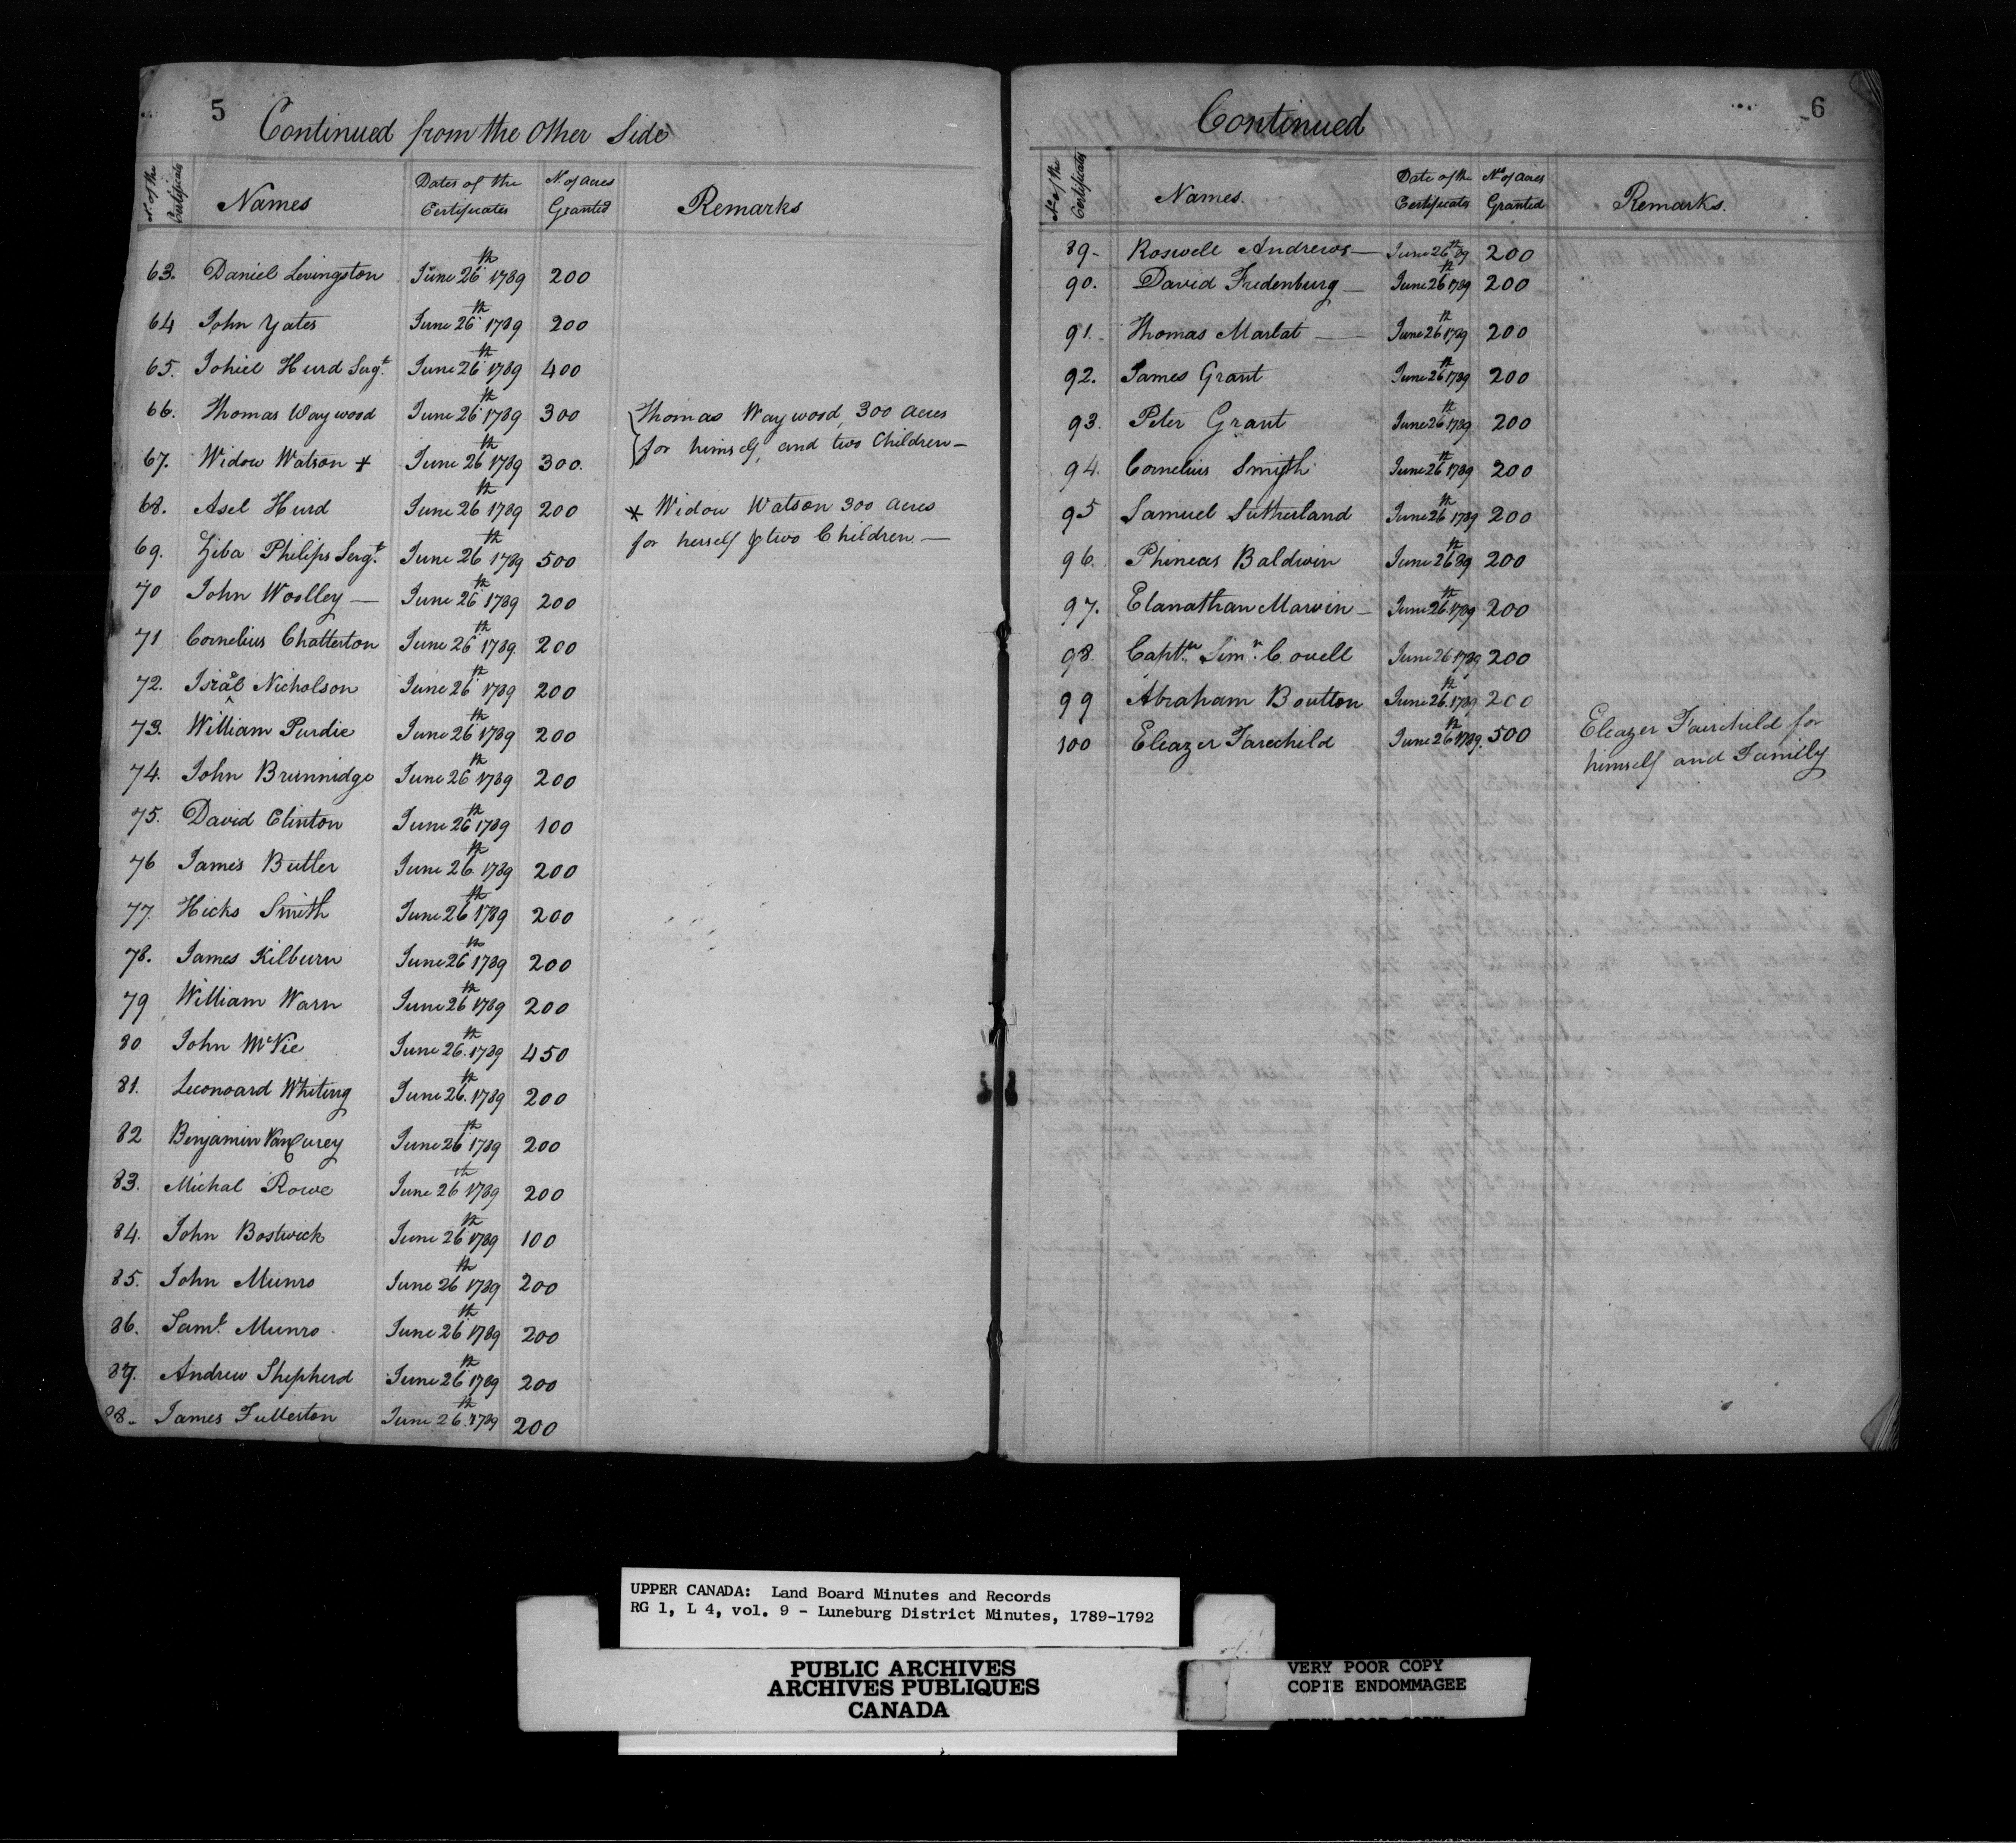 5
Continued from the Other Side
N. of the Certificates | Names | Dates of the Certificates | N. of acres Granted | Remarks
63. Daniel Livingston June 26th 1789 200
64 John Yates June 26th 1789 200
65. Johiel Hurd Sergt. June 26th 1789 400
66. Thomas Waywood June 26th 1789 300 Thomas Waywood, 300 acres
for himself, and two Children –
67. Widow Watson + June 26th 1789 300.
68. Asel Hurd June 26th 1789 200 * Widow Watson 300 acres
for herself & two Children. —
69. Ziba Philips Sergt. June 26th 1789 500
70 John Woolley — June 26th 1789 200
71 Cornelius Chatterton June 26th 1789. 200
72. Israel Nicholson June 26th 1789 200
73. William Purdie June 26th 1789 200
74. John Brunnidge June 26th 1789 200
75. David Clinton June 26th 1789 100
76 James Butler June 26th 1789 200
77. Hicks Smith June 26th 1789 200
78. James Kilburn June 26th 1789 200
79 William Warn June 26th 1789 200
80 John McVie June 26th 1789 450
81. Leconoard Whiting June 26th 1789 200
82 Benjamin VanCurey June 26th 1789 200
83. Michal Rowe June 26th 1789 200
84. John Bostwick June 26th 1789 100
85. John Munro June 26th 1789 200
86. Saml. Munro June 26th 1789 200
87. Andrew Shepherd June 26th 1789 200
88. James Fullerton June 26th 1789 200
6
Continued
No. of the Certificates | Names. | Date of the Certificate | No. of acres Granted | Remarks.
89– Roswell Andrews — June 26th 89 200
90. David Fredenburg — June 26th 1789 200
91. Thomas Marlat — June 26th 1789 200
92. James Grant June 26th 1789 200
93. Peter Grant June 26th 1789 200
94. Cornelius Smith June 26th 1789 200
95 Samuel Sutherland June 26th 1789 200
96. Phineas Baldwin June 26th 89 200
97. Elanathan Marvin – June 26th 1789 200
98. Captn. Simn. Covell June 26 1789 200
99 Abraham Boutton June 26th 1789 200
100 Eleazer Farechild June 26th 1789. 500 Eleazer Fairchild for
himself and Family
UPPER CANADA: Land Board Minutes and Records
RG 1, L 4, vol. 9 - Luneburg District Minutes, 1789-1792
PUBLIC ARCHIVES
ARCHIVES PUBLIQUES
CANADA
VERY POOR COPY
COPIE ENDOMMAGEE